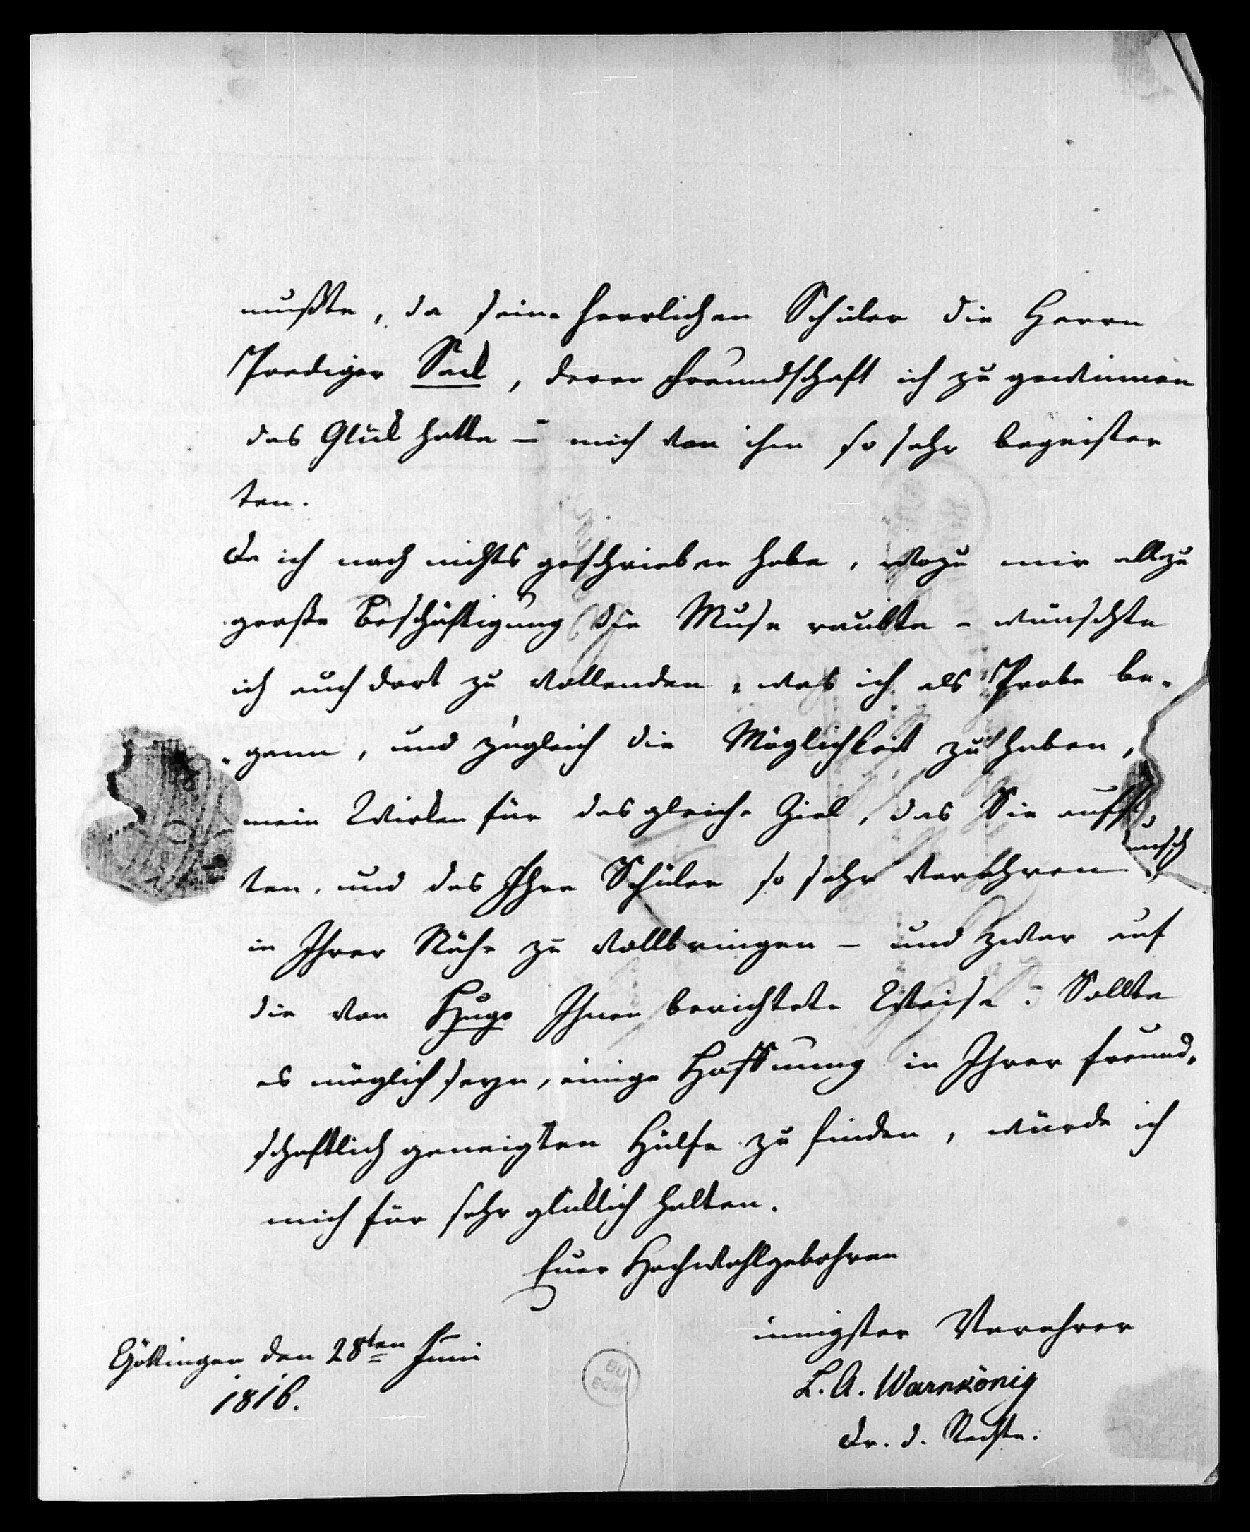 mußte, da seine herrlichen Schüler die Herrn
Prediger Sack, deren Freundschaft ich zu gewinnen
das Glük hatte – mich von ihm so sehr begeister
ten.
Da ich noch nichts geschrieben habe, wozu mir allzu
große Beschäftigung die Muse raubte – wünschte
ich auch dort zu vollenden, was ich als Probe be-
gann, und zugleich die Möglichkeit zu haben,
mein Wirken für das gleiche Ziel, das Sie auf
ten, und das Ihre Schüler so sehr verehren
in Ihrer Nähe zu vollbringen – und zwar auf
die von Hugo Ihnen berichtete Weise. Sollte
es möglich seyn, einige Hoffnung in Ihrer freund-
schaftlich geneigten Hülfe zu finden, würde ich
mich für sehr glüklich halten.
Euer Hochwohlgebohren
innigster Verehrer
Göttingen den 28ten Juni
1816.
L. A. Warnkönig
Dr. d. Rechte.